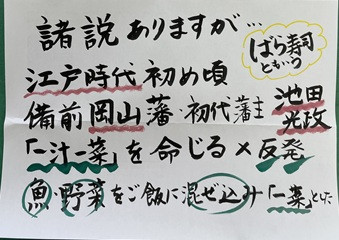 諸説ありますが…
ばら寿司
ともいう
江戸時代初め頃
備前岡山藩・初代藩主 池田光政
「一汁一菜」を命じる×反発
魚・野菜をご飯に混ぜ込み「一菜」とした